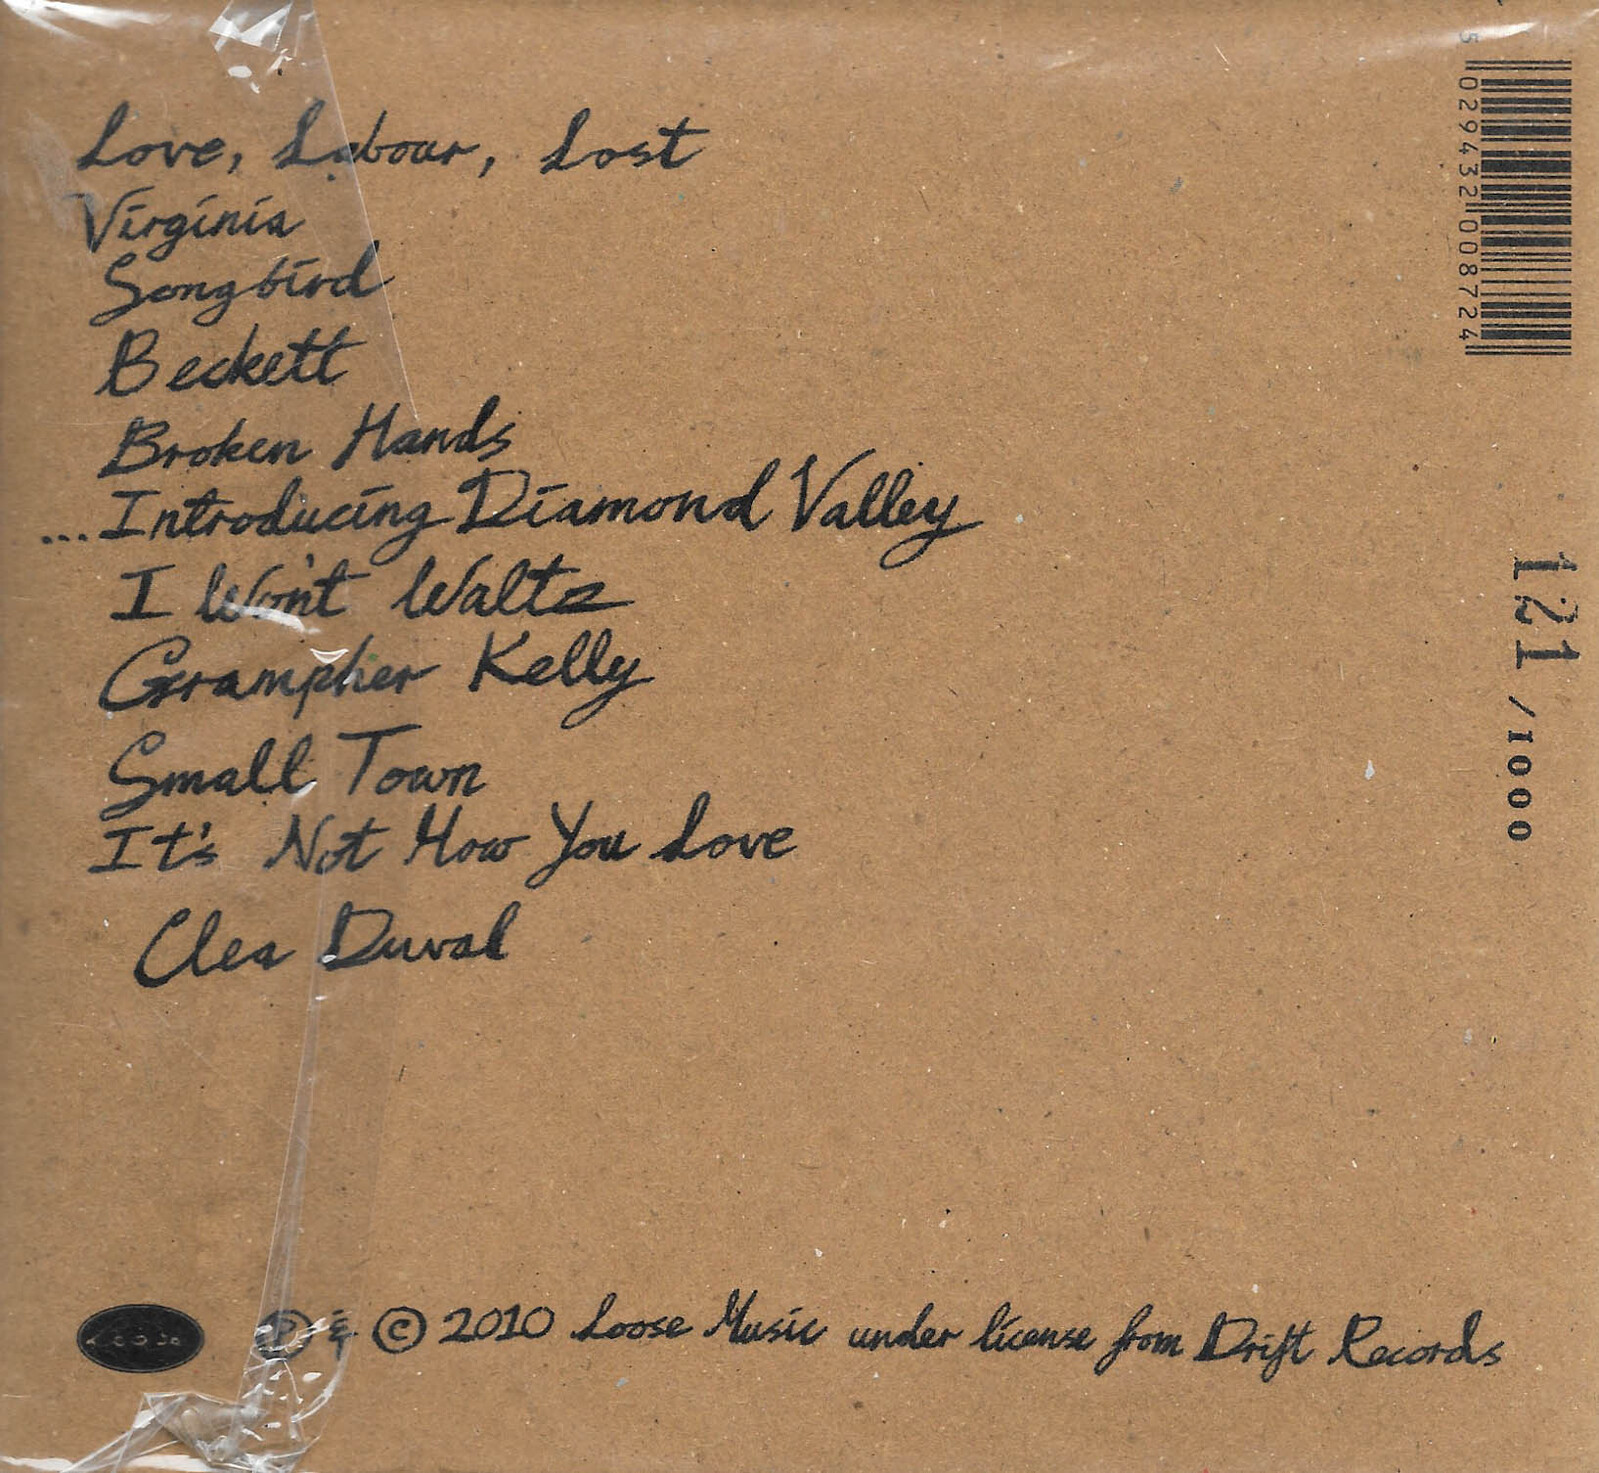 Love, Labour, Lost
Virginia
Songbird
Beckett
Broken Hands
...Introducing Diamond Valley
I Won't Waltz
Grampher Kelly
Small Town
It's Not How You Love
Clea Duval
5 029432 008724
121 /1000
Ⓟ & © 2010 Loose Music under license from Drift Records